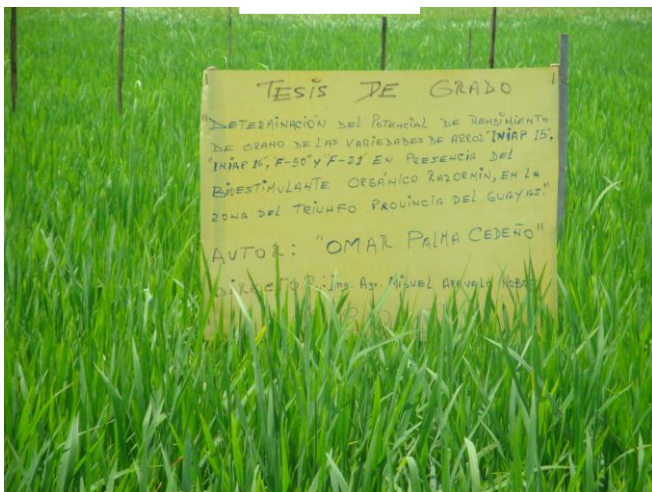 TESIS DE GRADO
"DETERMINACIÓN DEL POTENCIAL DE RENDIMIENTO
DE GRANO DE LAS VARIEDADES DE ARROZ "INIAP 15",
"INIAP 16", F-50" Y "F-21" EN PRESENCIA DEL
BIOESTIMULANTE ORGÁNICO RAZORMÍN, EN LA
ZONA DEL TRIUNFO PROVINCIA DEL GUAYAS."
AUTOR: "OMAR PALMA CEDEÑO"
DIRECTOR: Ing. Agr. MIGUEL AREVALO